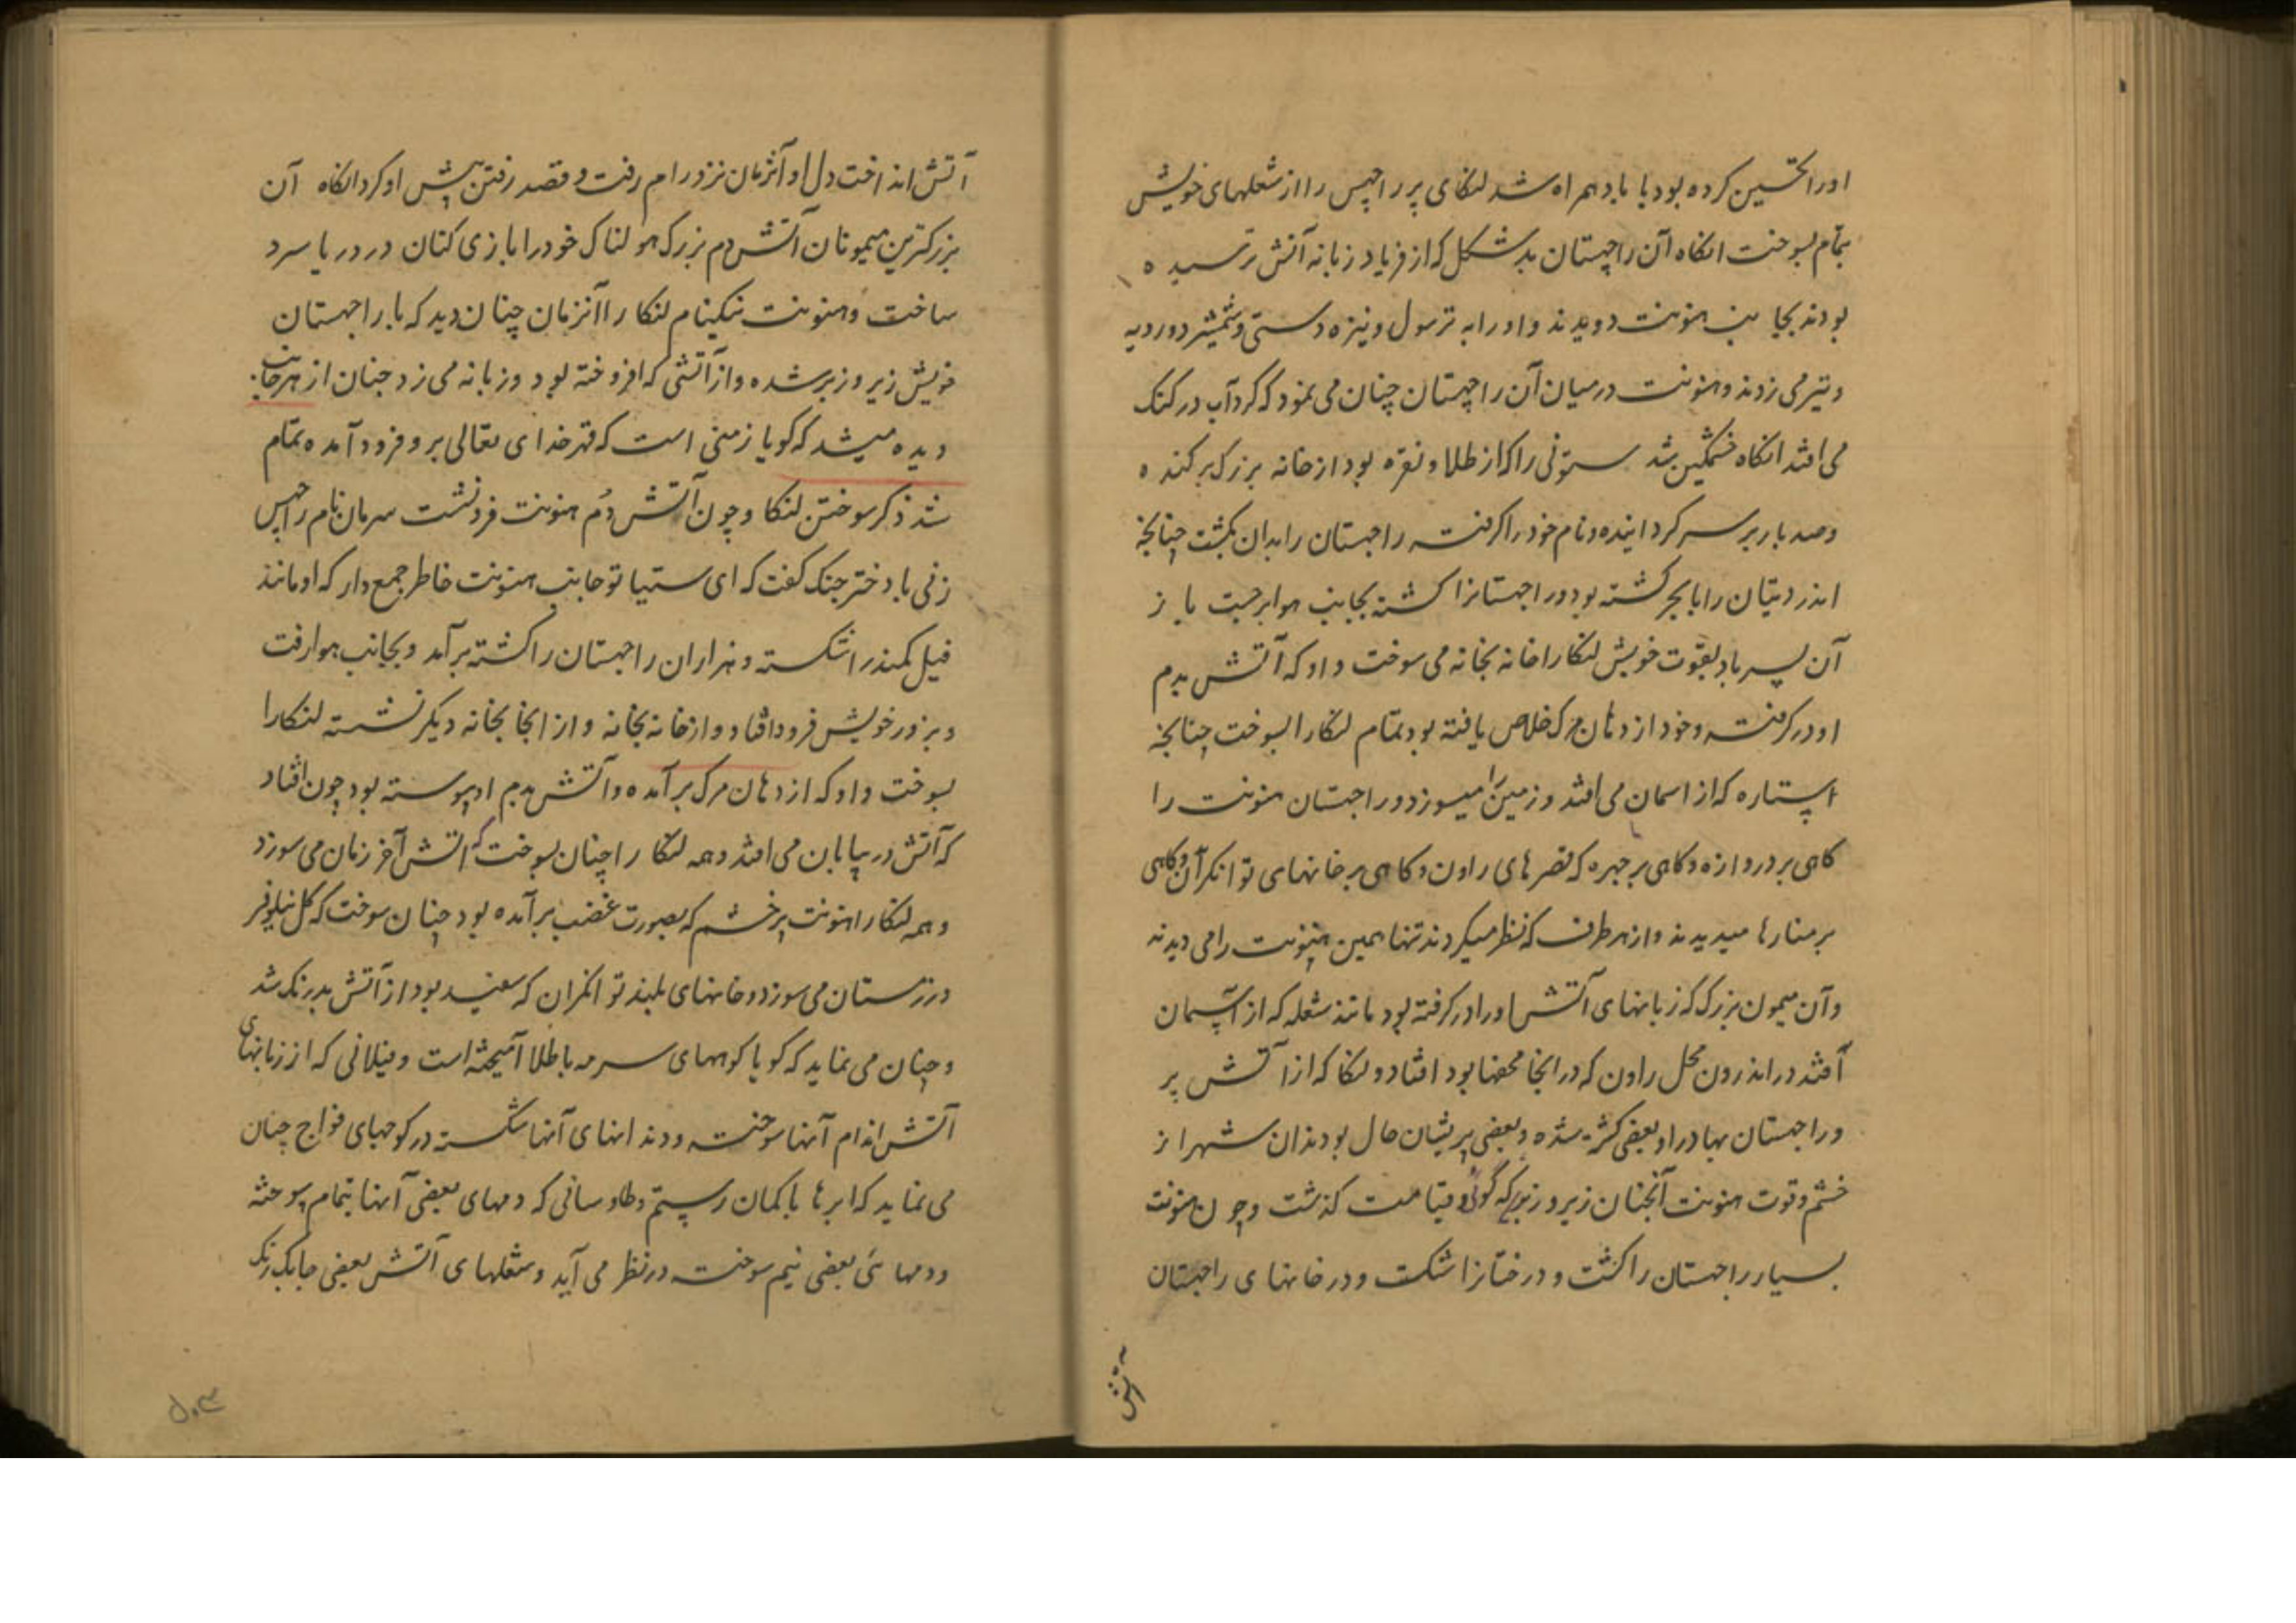 او را تحسین کرده بود با باد همراه شد لنکای پر راجپس را از شعلهای خویش
بتمام بسوخت انکاه آن راجهستان بد شکل که از فریاد زبانه آتش ترسیده
بودند بجانب هنونت دویدند و او را به ترسول و نیزه دستی و شمشیر دو رویه
و تیر می زدند و هنونت در میان آن راجهستان چنان می نمود که کرد آب در کنک
می افتد انکاه خشمکین شد ستونی را که از طلا و نقره بود از خانه بزرک برکنده
و صد بار بر سر کردانیده و نام خود را کرفته راجهستان را بدان بکشت چنانچه
اندر دیتان را با بجر کشته بود و راجهستانرا کشته بجانب هوا برجست باز
آن پسر باد بقوت خویش لنکا را خانه بخانه می سوخت و او که آتش بدم
او در کرفته و خود از دهان مرک خلاص یافته بود تمام لنکا را بسوخت چنانچه
استاره که از اسمان می افتد و زمین را میسوزد و راجهستان هنونت را
کاهی بر دروازه و کاهی بر حجره که قصرهای راون و کاهی بر خانهای توانکران و کاهی
بر منارها میدیدند و از هر طرف که نظر میکردند تنها همین هنونت را می دیدند
و آن میمون بزرک که زبانهای آتش او را در کرفته بود مانند شعله که از آسمان
افتد در اندرون محل راون که در انجا محفها بود افتاد و لنکا که از آتش پر
و راجهستان بهادر او بعضی کشته شده و بعضی پریشان حال بودند ان شهر از
خشم و قوت هنونت آنچنان زیر و زبر که کوئی و قیامت کذشت و چون هنونت
بسیار راجهستان را کشت و درختانرا شکست و در خانهای راجهستان
آتش
آتش انداخت دل او آنزمان نزد رام رفت و قصد رفتن پیش او کرد انکاه آن
بزرکترین میمونان آتش دم بزرک هولناک خود را بازی کنان در دریا سرد
ساخت و هنونت نیکنام لنکا را آنزمان چنان دید که با راجهستان
خویش زیر و زبر شده و از آتشی که افروخته بود و زبانه می زد چنان از هر جانب
دیده میشد که کویا زمینی است که قهر خدای تعالی برو فرود آمده تمام
شد ذکر سوختن لنکا و چون آتش دُم هنونت فرو نشست سرمان نام راجپس
زنی با دختر جنک کفت که ای ستیا تو جانب هنونت خاطر جمع دار که او مانند
فیل کمند را شکسته و هزاران راجهستان را کشته برآمد و بجانب هوا رفت
و بزور خویش فرود افتاد و از خانه بخانه و از انجا بخانه دیکر نشسته لنکا را
بسوخت و او که از دهان مرک برآمده و آتش بدم او پیوسته بود چون افتاد
که آتش در بیابان می افتد و همه لنکا را چنان بسوخت که آتش آخر زمان می سوزد
و همه لنکا را هنونت پر خشم که بصورت غضب برآمده بود چنان سوخت که کل نیلوفر
در زمستان می سوزد و خانهای بلند توانکران که سفید بود از آتش بدرنک شد
و چنان می نماید که کویا کوههای سرمه با طلا آمیخته است و فیلانی که از زبانهای
آتش اندام آنها سوخته و دندانهای آنها شکسته در کوچهای فراخ چنان
می نماید که ابرها با کمان رستم و طاوسانی که دمهای بعضی آنها بتمام سوخته
و دمهای بعضی نیم سوخته در نظر می آید و شعلهای آتش بعضی جا یک رنک